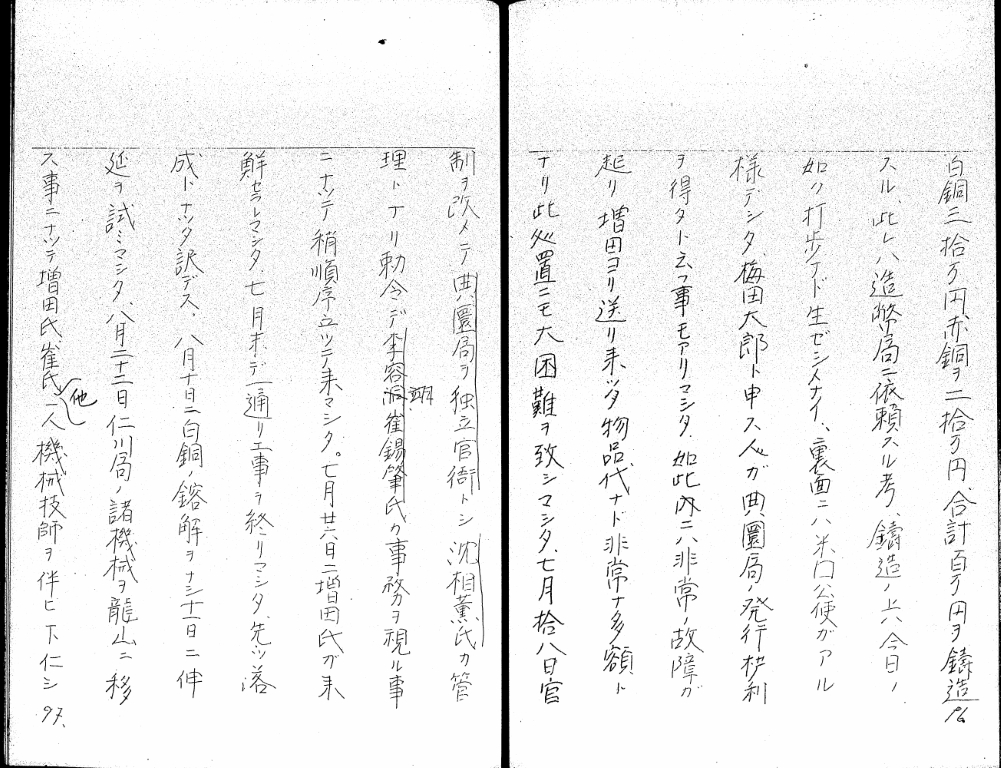 白銅三拾万円赤銅ヲ二拾万円、合計百万円ヲ鋳造
スル、此レハ造幣局ニ依頼スル考、鋳造ノ上ハ今日ノ
如ク打歩ナド生ゼシメナイ、裏面ニハ米国公使ガアル
様デシタ、梅田太郎ト申ス人ガ典圜局ノ発行权利
ヲ得タト云フ事モアリマシタ、如此内ニハ非常ノ故障ガ
起リ増田ヨリ送リ来ツタ物品代ナド非常ナ多額ト
ナリ此処置ニモ大困難ヲ致シマシタ、七月拾八日官
96
制ヲ改メテ典圜局ヲ独立官衙トシ沈相薫氏カ管
理トナリ勅令デ李容洞崔錫肇氏カ事務ヲ視ル事
ニナツテ稍順序立ツテ来マシタ。七月廿六日ニ増田氏ガ来
鮮セラレマシタ、七月末デ一通リ工事ヲ終リマシタ、先ツ落
成トナツタ訳デス、八月十日ニ白銅ノ鎔解ヲナシ十一日ニ伸
延ヲ試ミマシタ、八月二十二日仁川局ノ諸機械ヲ龍山ニ移
ス事ニナツテ増田氏崔氏他二人機械技師ヲ伴ヒ下仁シ
97.